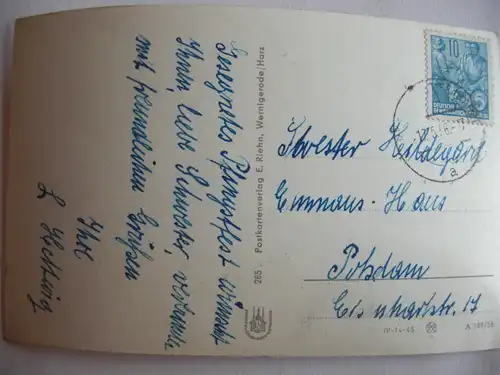 Gesegnetes Pfingstfest wünscht
Ihnen, liebe Schwester, verbunden
mit freundlichen Grüßen
Ihr
L Hellwig
265 Postkartenverlag E. Riehn, Wernigerode/Harz
10
DEUTSCHE
a
Schwester Hildegard
Emmaus-Haus
Potsdam
Eisenhartstr. 17
IV-14-45
A 189/58